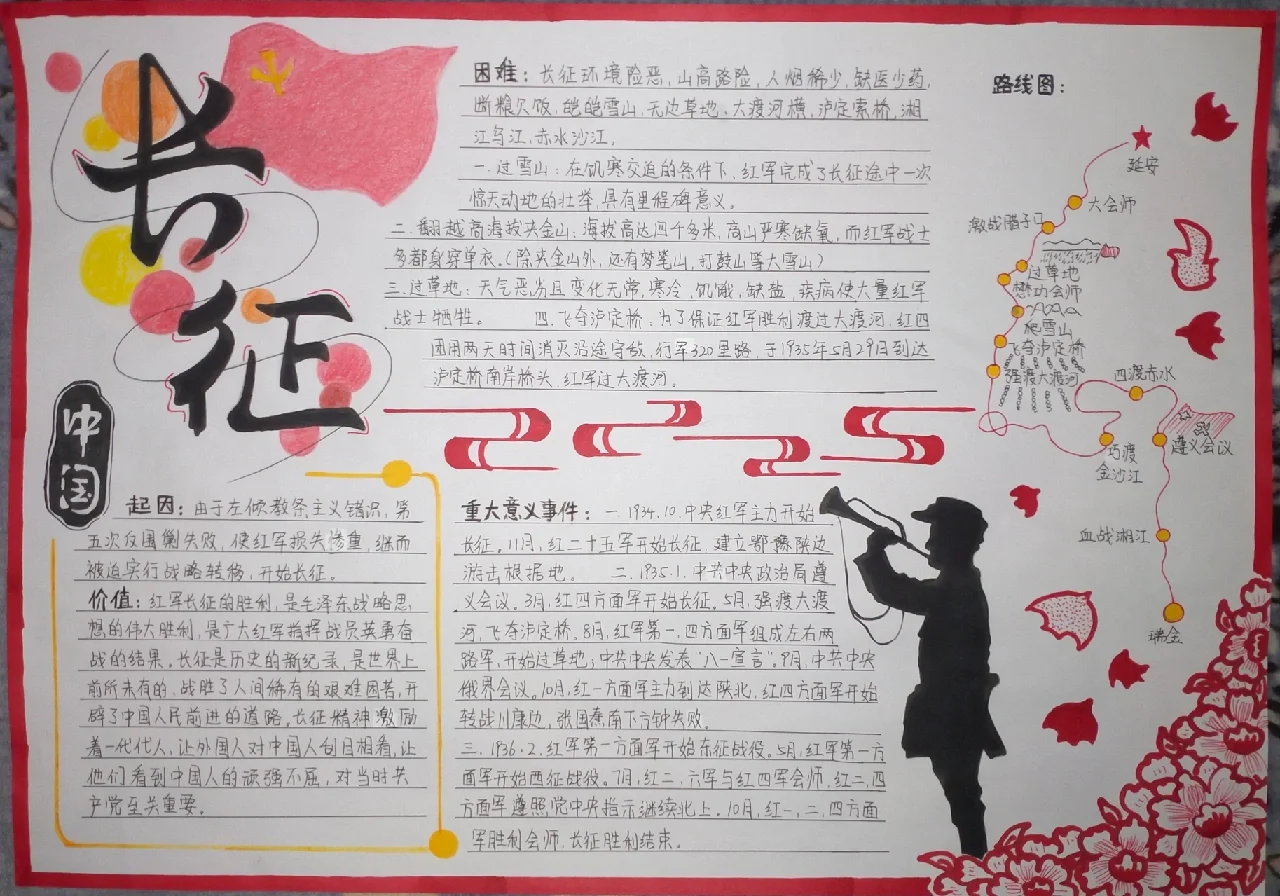 长征
中国
困难：长征环境险恶，山高路险，人烟稀少，缺医少药，
断粮欠饭，皑皑雪山，无边草地、大渡河横，泸定索桥，湘
江乌江，赤水沙江，
一.过雪山：在饥寒交迫的条件下，红军完成了长征途中一次
惊天动地的壮举，具有里程碑意义。
二.翻越高海拔夹金山：海拔高达四千多米，高山严寒缺氧，而红军战士
多都身穿单衣。（除夹金山外，还有梦笔山，打鼓山等大雪山）
三.过草地：天气恶劣且变化无常，寒冷，饥饿，缺盐，疾病使大量红军
战士牺牲。 四.飞夺泸定桥：为了保证红军胜利渡过大渡河，红四
团用两天时间消灭沿途守敌，行军320里路，于1935年5月29日到达
泸定桥南岸桥头，红军过大渡河。
起因：由于左倾教条主义错识，第
五次反围剿失败，使红军损失惨重，继而
被迫实行战略转移，开始长征。
价值：红军长征的胜利，是毛泽东战略思
想的伟大胜利，是广大红军指挥战员英勇奋
战的结果。长征是历史的新纪录，是世界上
前所未有的，战胜了人间稀有的艰难困苦，开
辟了中国人民前进的道路，长征精神激励
着一代代人，让外国人对中国人刮目相看，让
他们看到中国人的顽强不屈，对当时共
产党至关重要。
重大意义事件：一.1934.10.中央红军主力开始
长征。11月，红二十五军开始长征，建立鄂豫陕边
游击根据地。 二.1935.1.中共中央政治局遵
义会议。3月，红四方面军开始长征。5月，强渡大渡
河，飞夺泸定桥。8月，红军第一、四方面军组成左右两
路军，开始过草地；中共中央发表“八一宣言”。9月，中共中央
俄界会议。10月，红一方面军主力到达陕北，红四方面军开始
转战川康边，张国焘南下方针失败。
三.1936.2.红军第一方面军开始东征战役。5月，红军第一方
面军开始西征战役。7月，红二、六军与红四军会师，红二、四
方面军遵照党中央指示继续北上。10月，红一、二、四方面
军胜利会师，长征胜利结束。
路线图：
延安
大会师
激战腊子口
过草地
懋功会师
爬雪山
飞夺泸定桥
强渡大渡河
四渡赤水
遵义会议
巧渡
金沙江
血战湘江
瑞金